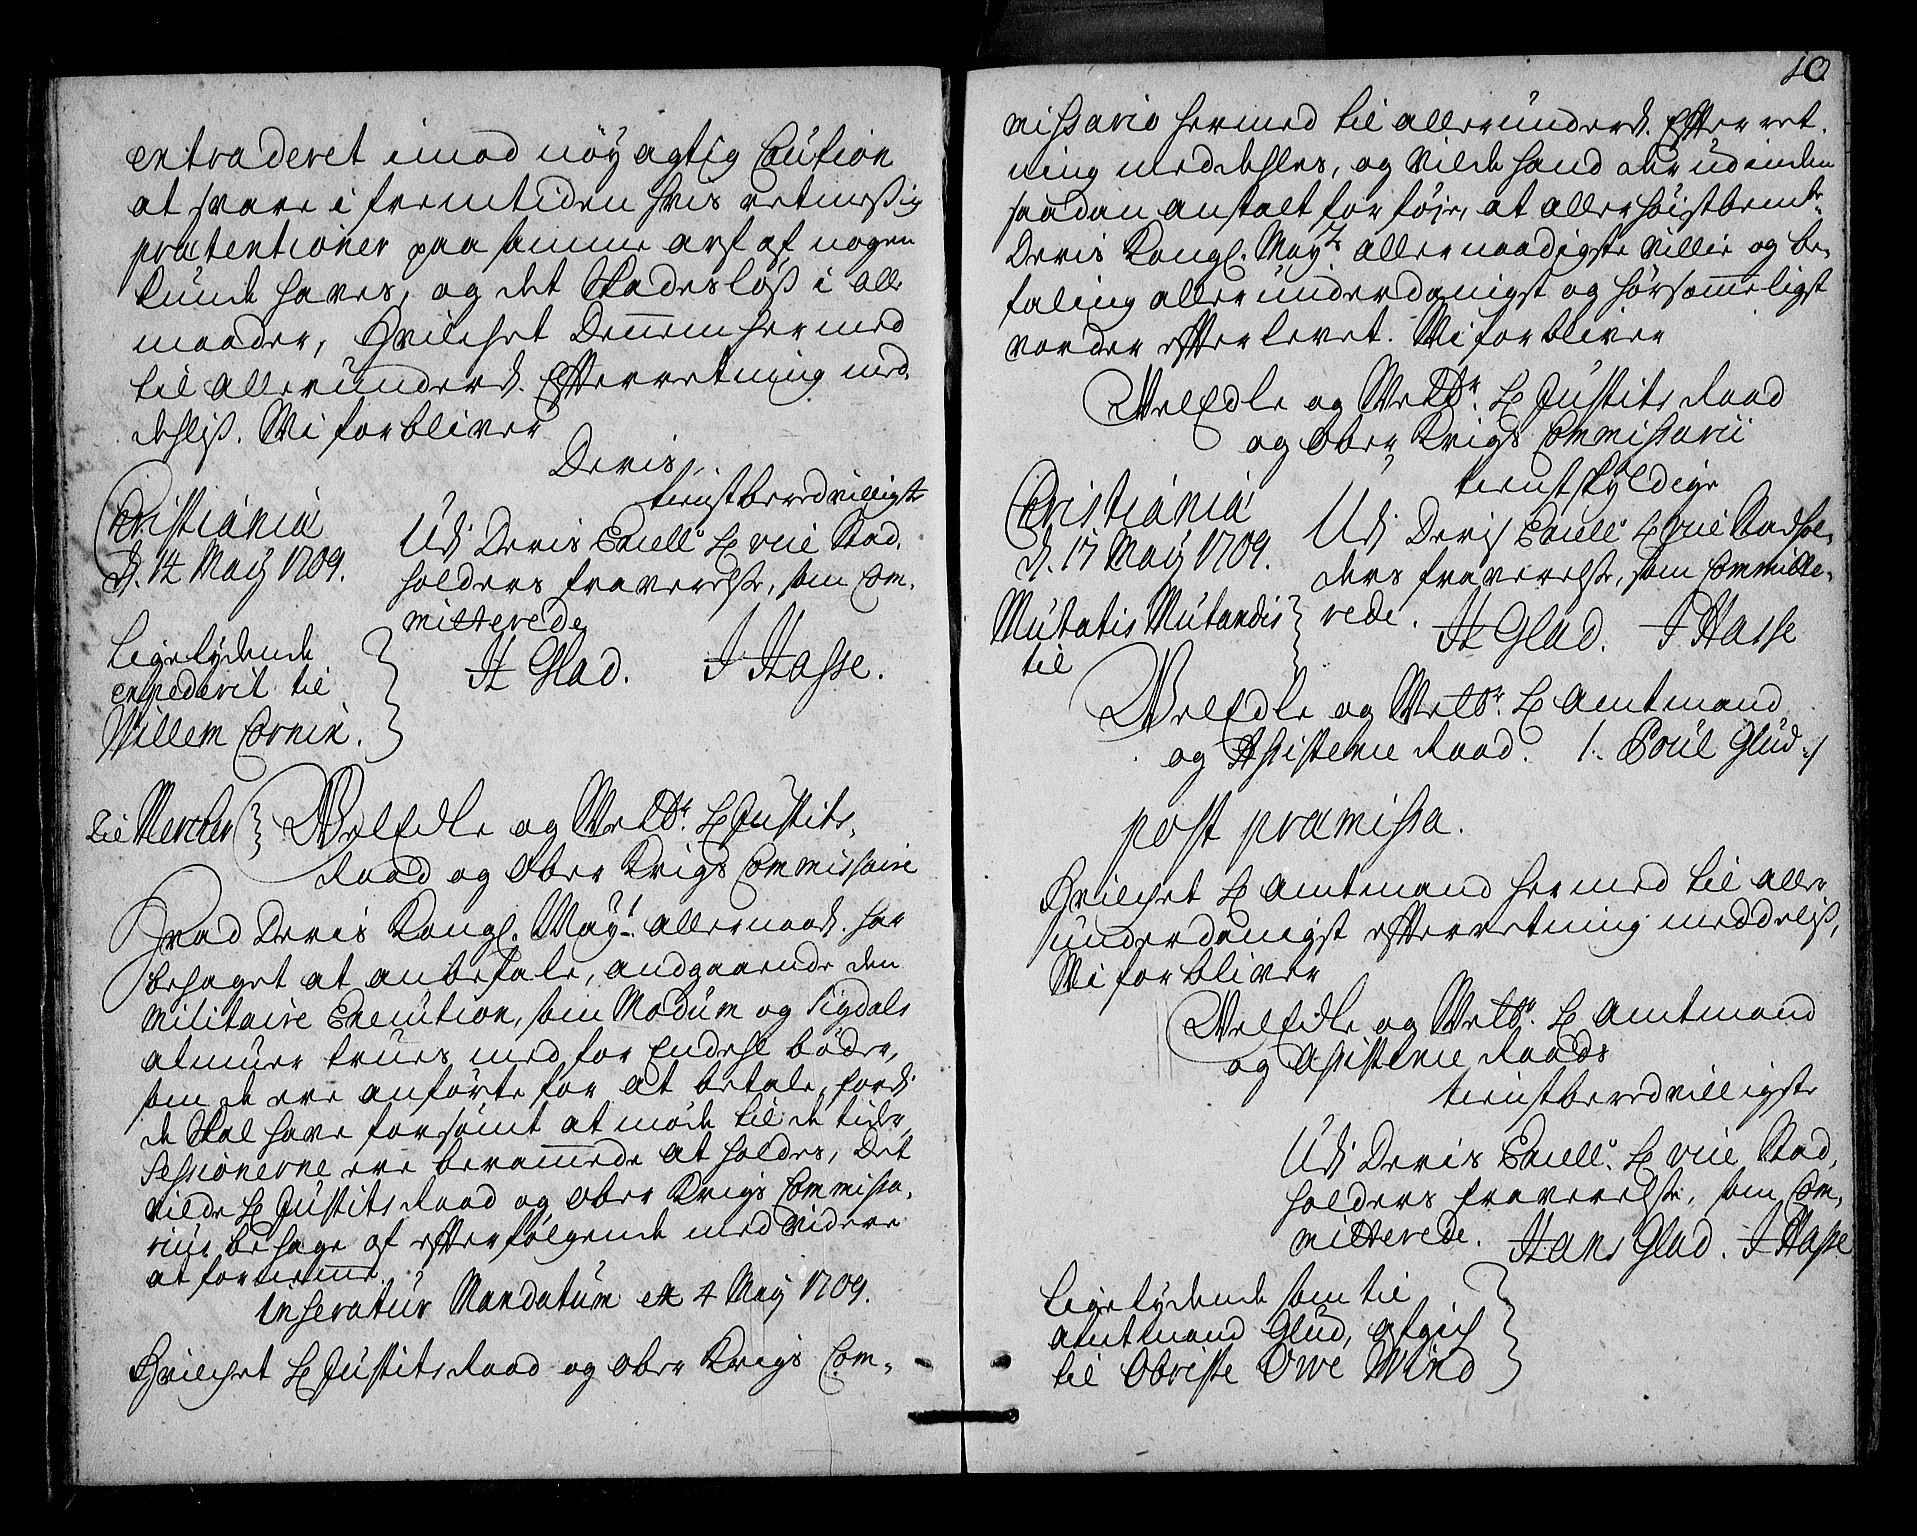 extraderet imod nöyagtig Caution
at svare i fremtiden hvis retmessig
prætentioner paa samme arf af nogen
kunde haves, og det Skadeslöß i alle
maader, Hvilchet Dennem hermed
til allerunderd. Efterretning med,
dehliß. Wi forbliver
Deris
tienstberedvilligste
Christiania
d. 14 Maij 1709.
Udi Deris Excell: H vice Stad,
holders fraverelse, som Com,
mitterede
H Glad. J Hasse.
Ligelydende
expederit til
Willem Cornix.
Til Mercker
WelEdle og Welb: H Justits,
Raad og Ober Krigs Commissaire
Hvad Deris Kongl. May: allernaad. har
behaget at anbefale, andgaaende den
Militaire Execution, som Modum og Sigdals
almuer trues med for Endehl bøder,
som de ere anførte for at betale, fordi
de Skal have forsømt at møde til de tider,
Sessionerne ere beramede at holdes, Det
vilde H Justits Raad og Ober Krigs Commissa,
rius behage af efterfølgende med videre
at fornemme.
Inseratur Mandatum de 4 Maij 1709.
Hvilchet H Justits Raad og Ober Krigs Com,
10.
missario hermed til allerunderd. Efterret,
ning meddehles, og vilde hand der udinden
saadan anstalt forføje, at allerhøistbemte,
Deris Kongl. May: allernaadigste villie og be,
faling allerunderdanigst og hørsommeligst
vorder efterlevet. Wi forbliver
WelEdle og Welb: H Justits Raad
og Ober Krigs Commissarii
tienstskyldige
Christiania
d. 17 Maij 1709.
Udi Deris Excell: H vice Stadhol,
ders fraverelse, som Committe,
rede. H Glad. J Hasse
Mutatis Mutandis
til
WelEdle og Welb: H Amtmand
og Assistence Raad. /. Poul Glud ./
post præmissa.
Hvilchet H Amtmand hermed til aller
underdanigst efterretning meddeliß,
Wi forbliver
WelEdle og Welb: H Amtmand
og Assistence Raads
tienstberedvilligste
Udi Deris Excell: H vice Stad,
holders fraverelse, som Com,
mitterede. Hans Glad. J Hasse
Ligelydende som til
Amtmand Glud, afgich
til Obriste Owe Wind